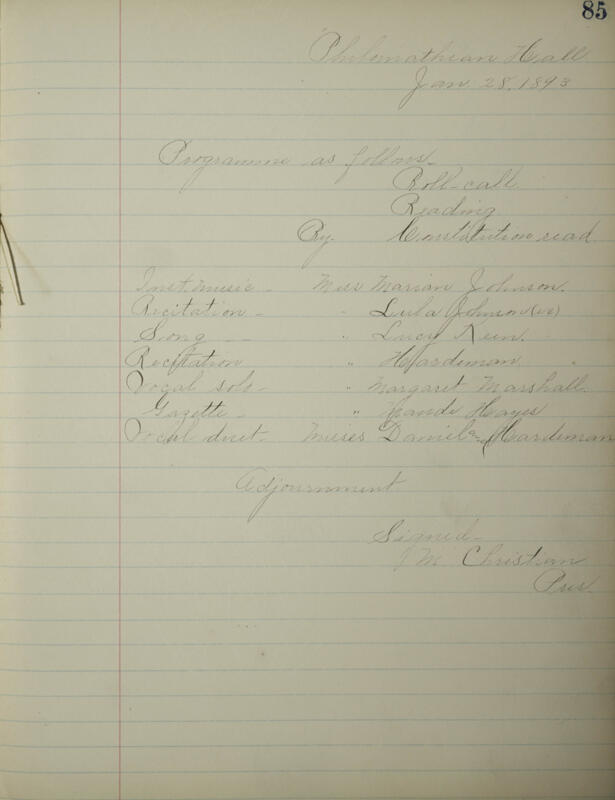 85
Philomathian Hall
Jan. 28, 1893
Programme as follows-
Roll-call
Reading
By. Constitution read
Inst. music - Miss Marian Johnson.
Recitation - " Lula Johnson
Song - - " Lucy Keen.
Recitation " Hardeman. "
Vocal solo - " Margaret Marshall.
Gazette - " Maude Hayes
Vocal duet - Misses Daniel & Hardeman
Adjournment
Signed-
M Christian
Pres.